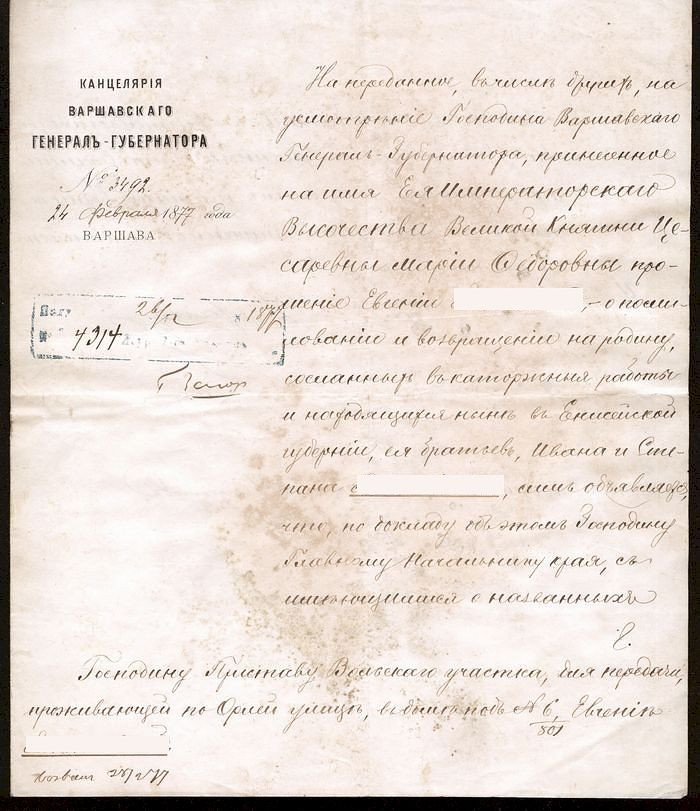 КАНЦЕЛЯРІЯ
ВАРШАВСКАГО
ГЕНЕРАЛЪ-ГУБЕРНАТОРА
№ 3492.
24 Февраля 1877 года
ВАРШАВА
26/II 1877
4314
На переданное, въ числѣ другихъ, на
усмотрѣніе Господина Варшавскаго
Генералъ-Губернатора, принесенное
на имя Ея Императорскаго
Высочества Великой Княгини Це-
саревны Маріи Ѳедоровны про-
шеніе Евгеніи, - о поми-
лованіи и возвращеніи на родину,
сосланныхъ въ каторжныя работы
и находящихся нынѣ въ Енисейской
губерніи, ея братьевъ, Ивана и Сте-
пана, симъ объявляется,
что, по докладу объ этомъ Господину
Главному Начальнику края, съ
имѣющимися о названныхъ
Господину Приставу Вольскаго участка, для передачи,
проживающей по Орлей улицѣ, въ домѣ подъ № 6/801, Евгеніи